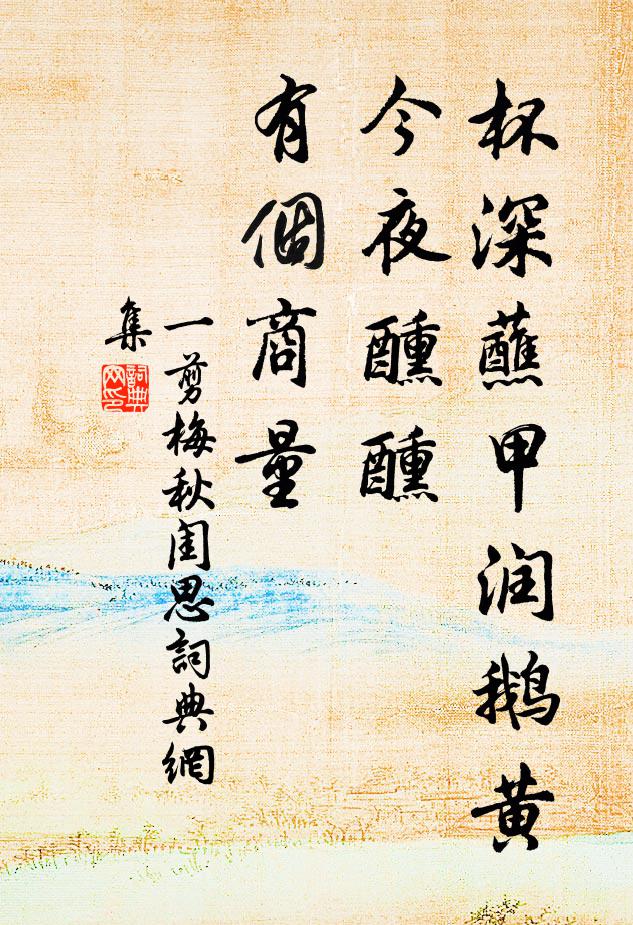 杯深蘸甲润鹅黄
今夜醺醺
有個商量
一剪梅秋闺思詞典網
集
詞典網印